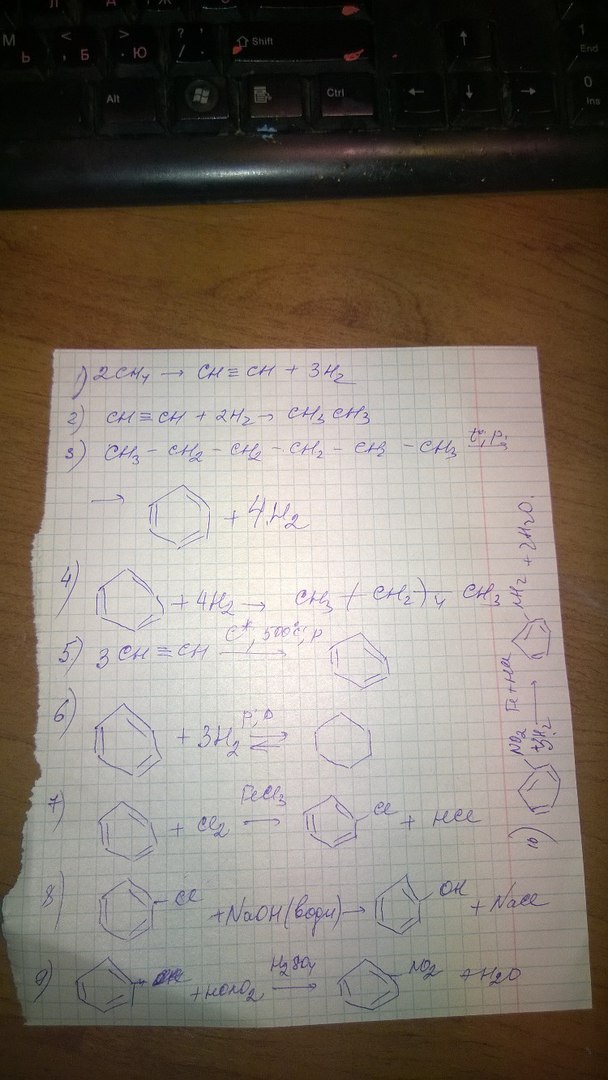 Shift
End
Alt
Ctrl
Ins
1) 2CH4 → CH≡CH + 3H2
2) CH≡CH + 2H2 → CH3 CH3
3) CH3 - CH2 - CH2 - CH2 - CH2 - CH3 t°, p;
→ + 4H2
4) + 4H2 → CH3 - (CH2)4 - CH3
5) 3CH≡CH C*, 500°C, p →
6) + 3H2 p; ⇌
7) + Cl2 FeCl3 → Cl + HCl
8) Cl + NaOH (водн) → OH + NaCl
9) + HONO2 H2SO4 → NO2 + H2O
10) NO2 Fe + HCl +3H2 → NH2 + 2H2O.